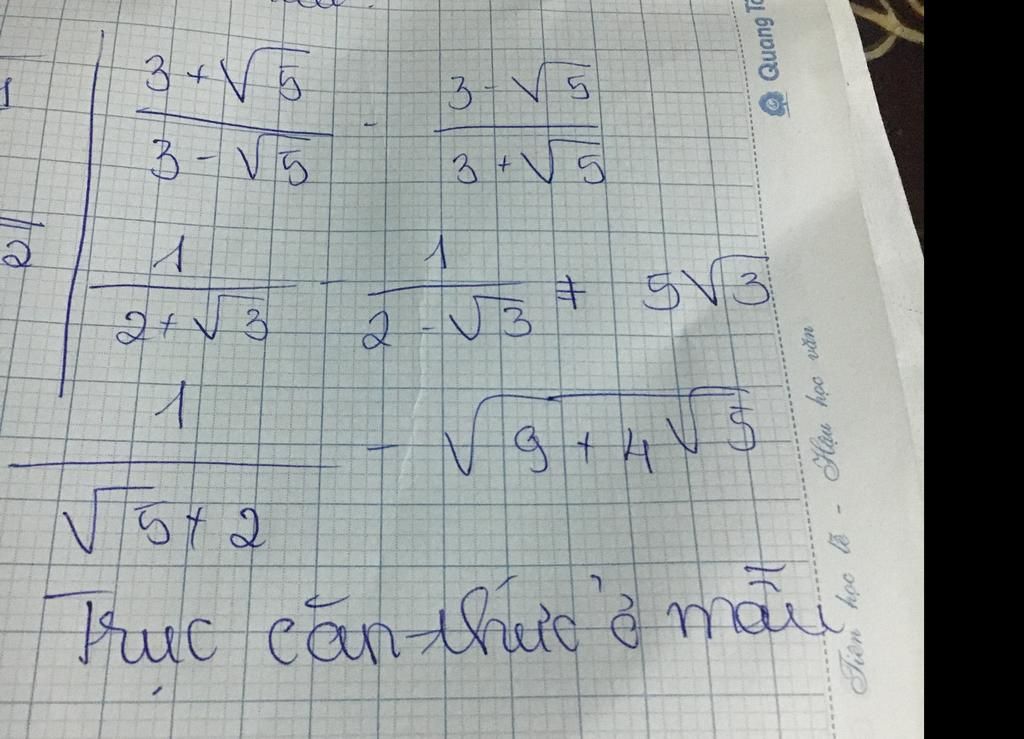 3 + √5 / 3 - √5 - 3 - √5 / 3 + √5
1 / 2 + √3 - 1 / 2 - √3 + 5√3
1 / √5 + 2 - √(9 + 4√5)
Trục căn thức ở mẫu
1
2
Quang
Tiên học lễ - Hậu học văn